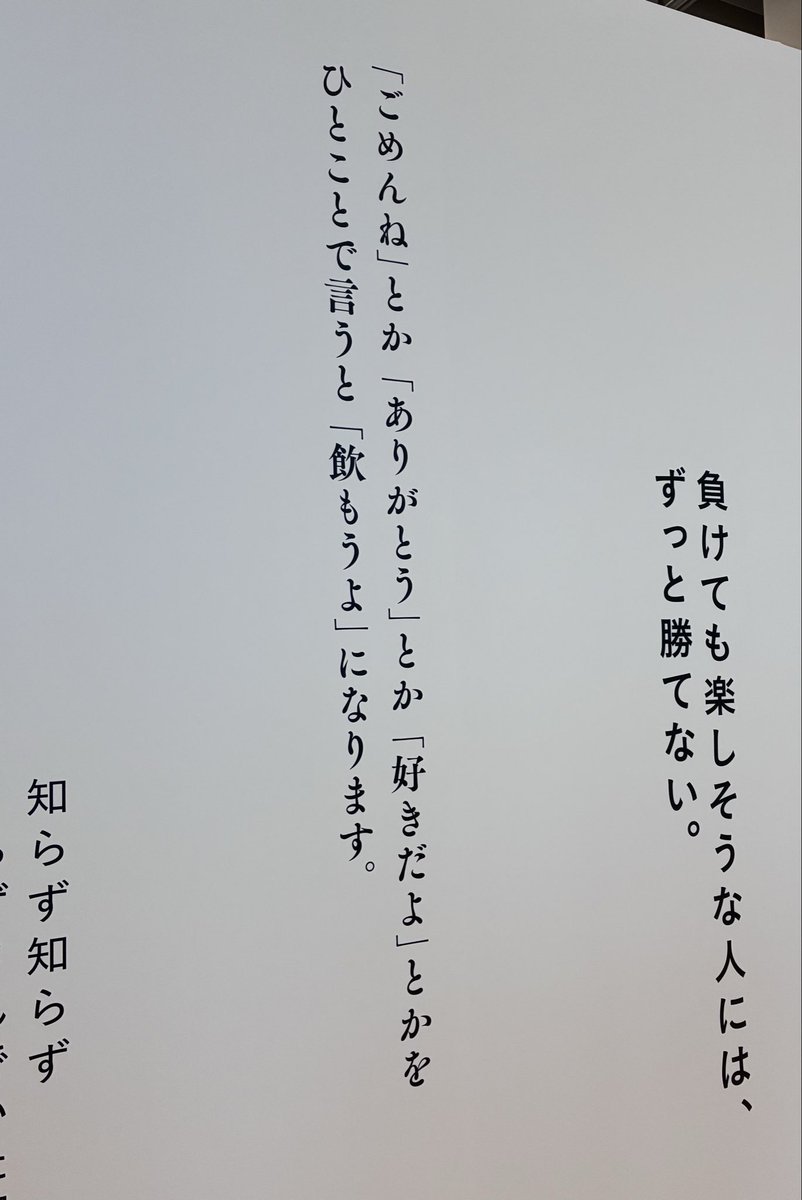 負けても楽しそうな人には、
ずっと勝てない。
「ごめんね」とか「ありがとう」とか「好きだよ」とかを
ひとことで言うと「飲もうよ」になります。
知らず知らず